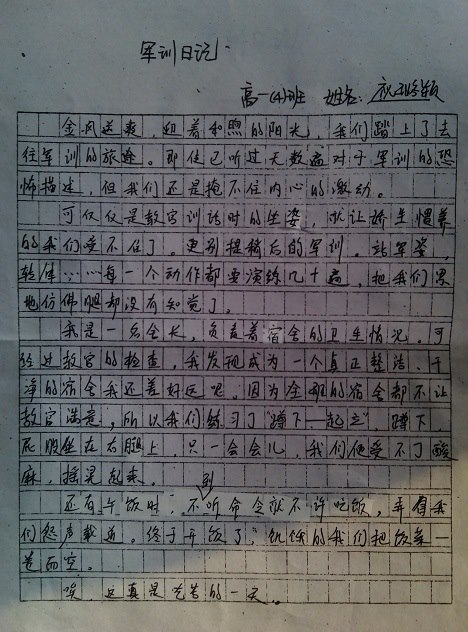 军训日记
高一(4)班 姓名:祝
金风送爽,迎着和煦的阳光,我们踏上了去
往军训的旅途。即使已听过无数遍对于军训的恐
怖描述,但我们还是掩不住内心的激动。
可仅仅是教官训话时的坐姿,就让娇生惯养
的我们受不住了。更别提稍后的军训。站军姿,
转体……每一个动作都要演练几十遍,把我们累
地仿佛腿都没有知觉了。
我是一名舍长,负责着宿舍的卫生情况。可
经过教官的检查,我发现成为一个真正整洁、干
净的宿舍我还差好远呢。因为全班的宿舍都不让
教官满意,所以我们练习了“蹲下—起立”,蹲下,
屁股坐在右腿上,只一会会儿,我们便受不了酸
麻,摇晃起来。
还有午饭时,不听到命令就不许吃饭,弄得我
们怨声载道。终于开饭了,饥饿的我们把饭菜一
卷而空。
唉,这真是吃苦的一天。